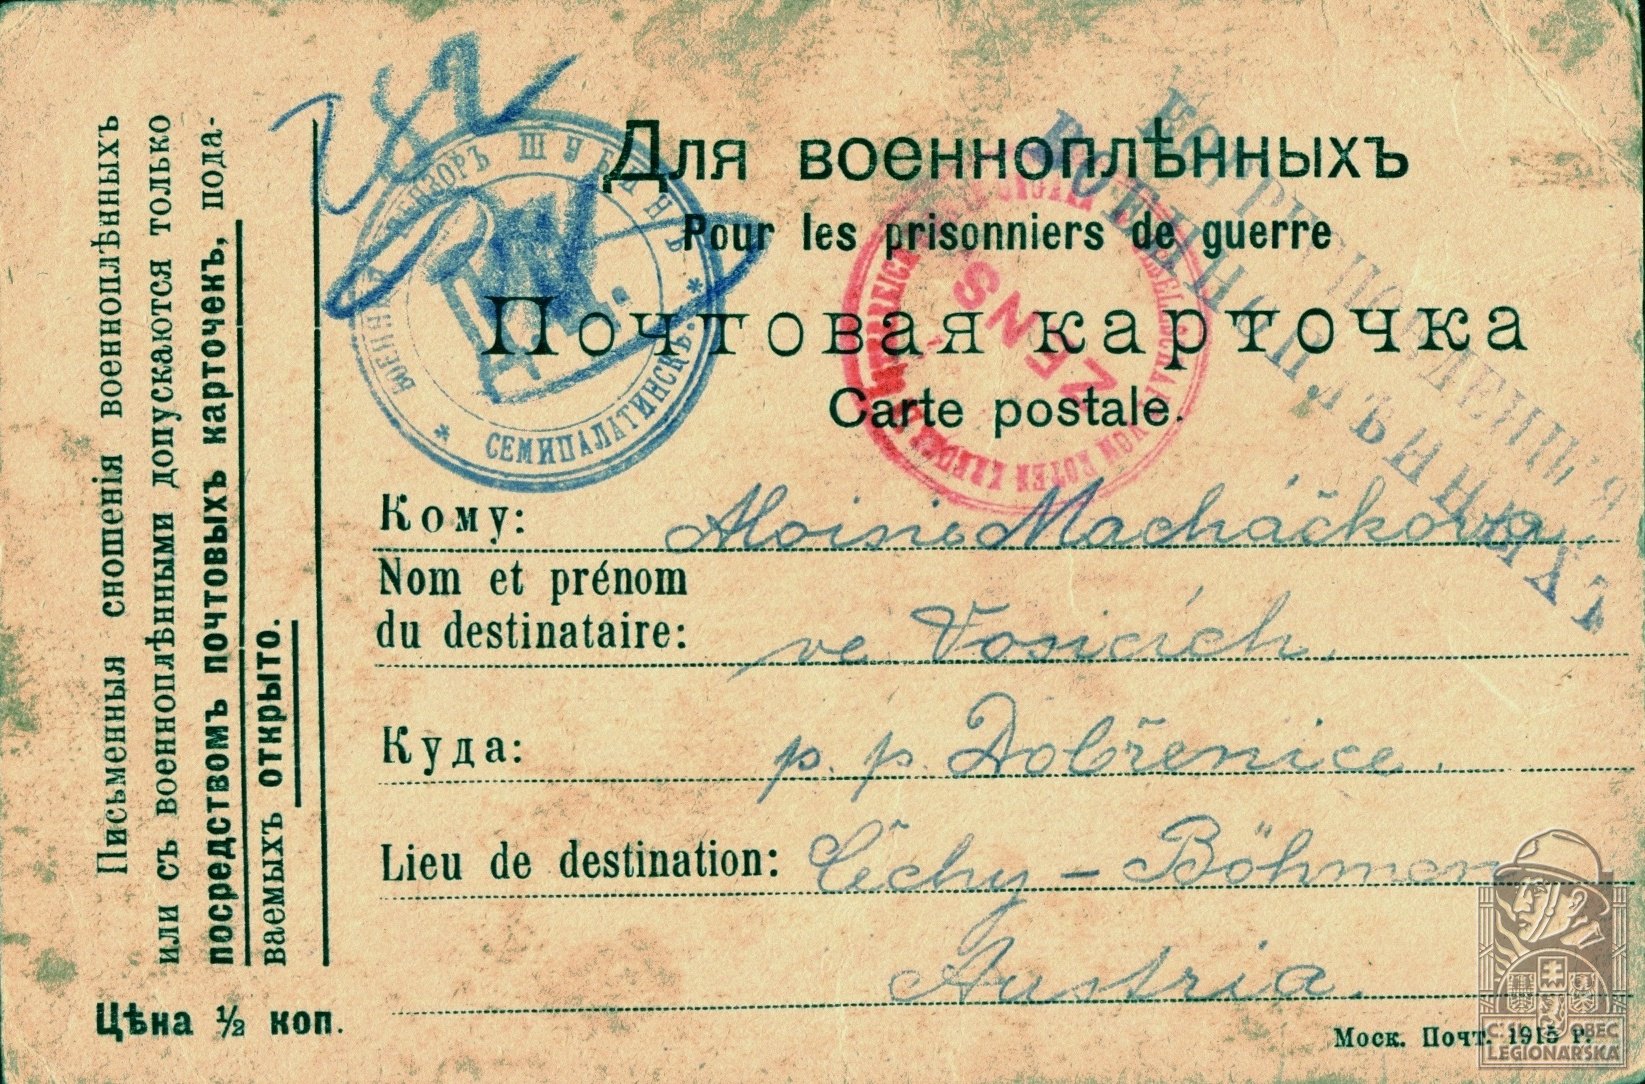 Для военноплѣнныхъ
Pour les prisonniers de guerre
Почтовая карточка
Carte postale.
Кому: Aloisie Macháčkova
Nom et prénom
du destinataire: ve Vosicích.
Куда: p. p. Dobřenice.
Lieu de destination: Čechy – Böhmen
Austria.
Моск. Почт. 1915 г.
Письменныя сношенія военноплѣнныхъ
или съ военноплѣнными допускаются только
посредствомъ почтовыхъ карточекъ, пода-
ваемыхъ открыто.
Цѣна ½ коп.
ВОЕННЫЙ ЦЕНЗОРЪ ШУБИНЪ
* СЕМИПАЛАТИНСКЪ. *
ZENS
КОРРЕСПОНДЕНЦІЯ
ВОЕННОПЛѢННЫХЪ
OBEC
LEGIONÁŘSKÁ